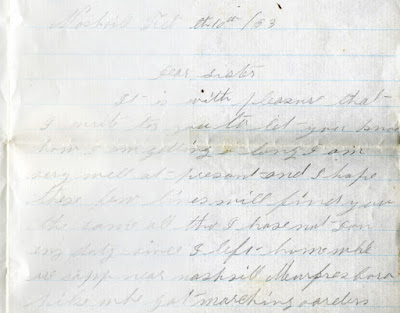 Nashvill Feb th 10th / 63
dear sister
It is with pleasure that
I write to you to let you know
how I am getting a long I am
very well at present and I hope
these few lines will find you
the same all tho I have not don
eny duty since I left home
near nashvill Murfresboro
pike got marching oarders